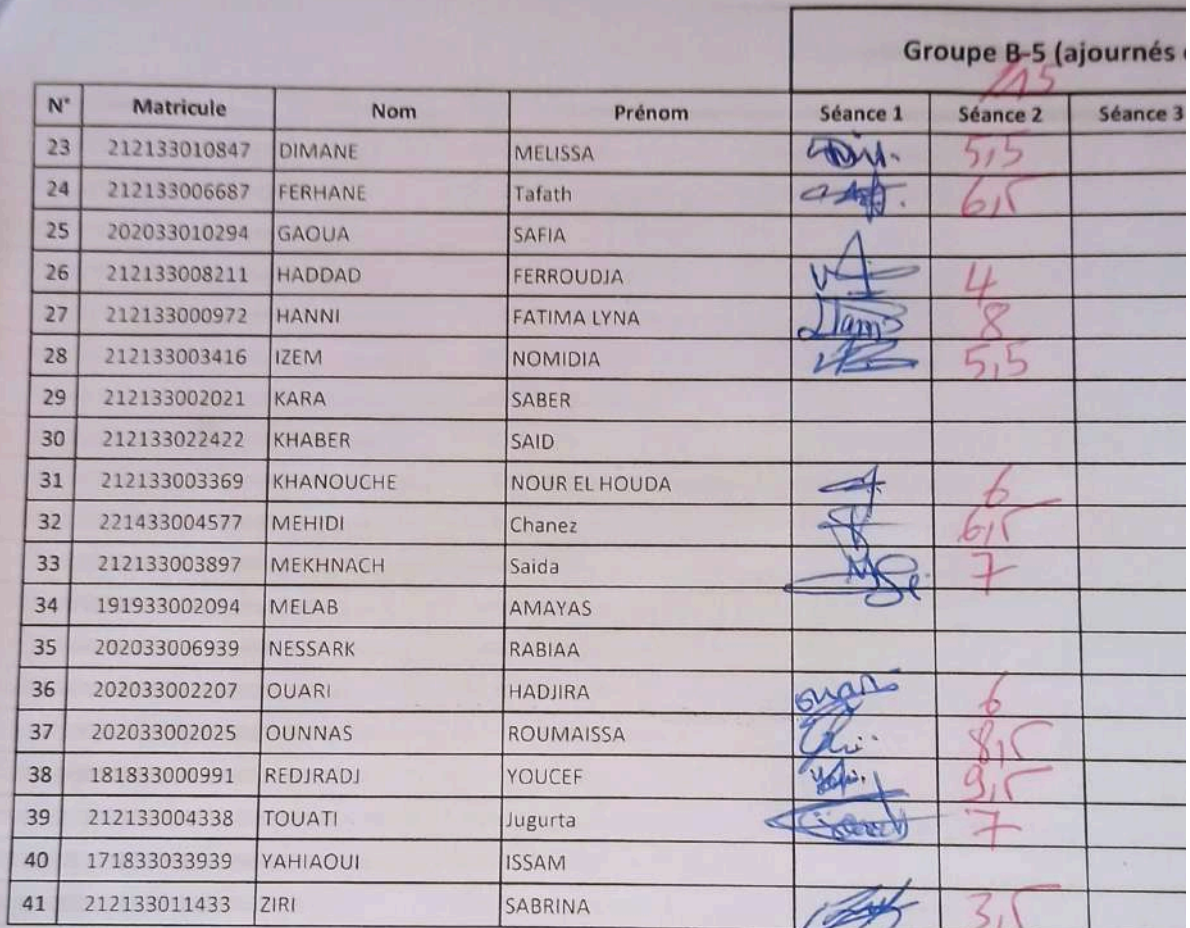 Groupe B-5 (ajournés
/15
N° Matricule Nom Prénom Séance 1 Séance 2 Séance 3
23 212133010847 DIMANE MELISSA 5,5
24 212133006687 FERHANE Tafath 6,5
25 202033010294 GAOUA SAFIA
26 212133008211 HADDAD FERROUDJA 4
27 212133000972 HANNI FATIMA LYNA 8
28 212133003416 IZEM NOMIDIA 5,5
29 212133002021 KARA SABER
30 212133022422 KHABER SAID
31 212133003369 KHANOUCHE NOUR EL HOUDA 6
32 221433004577 MEHIDI Chanez 6,5
33 212133003897 MEKHNACH Saida 7
34 191933002094 MELAB AMAYAS
35 202033006939 NESSARK RABIAA
36 202033002207 OUARI HADJIRA 6
37 202033002025 OUNNAS ROUMAISSA 8,5
38 181833000991 REDJRADJ YOUCEF 9,5
39 212133004338 TOUATI Jugurta 7
40 171833033939 YAHIAOUI ISSAM
41 212133011433 ZIRI SABRINA 3,5